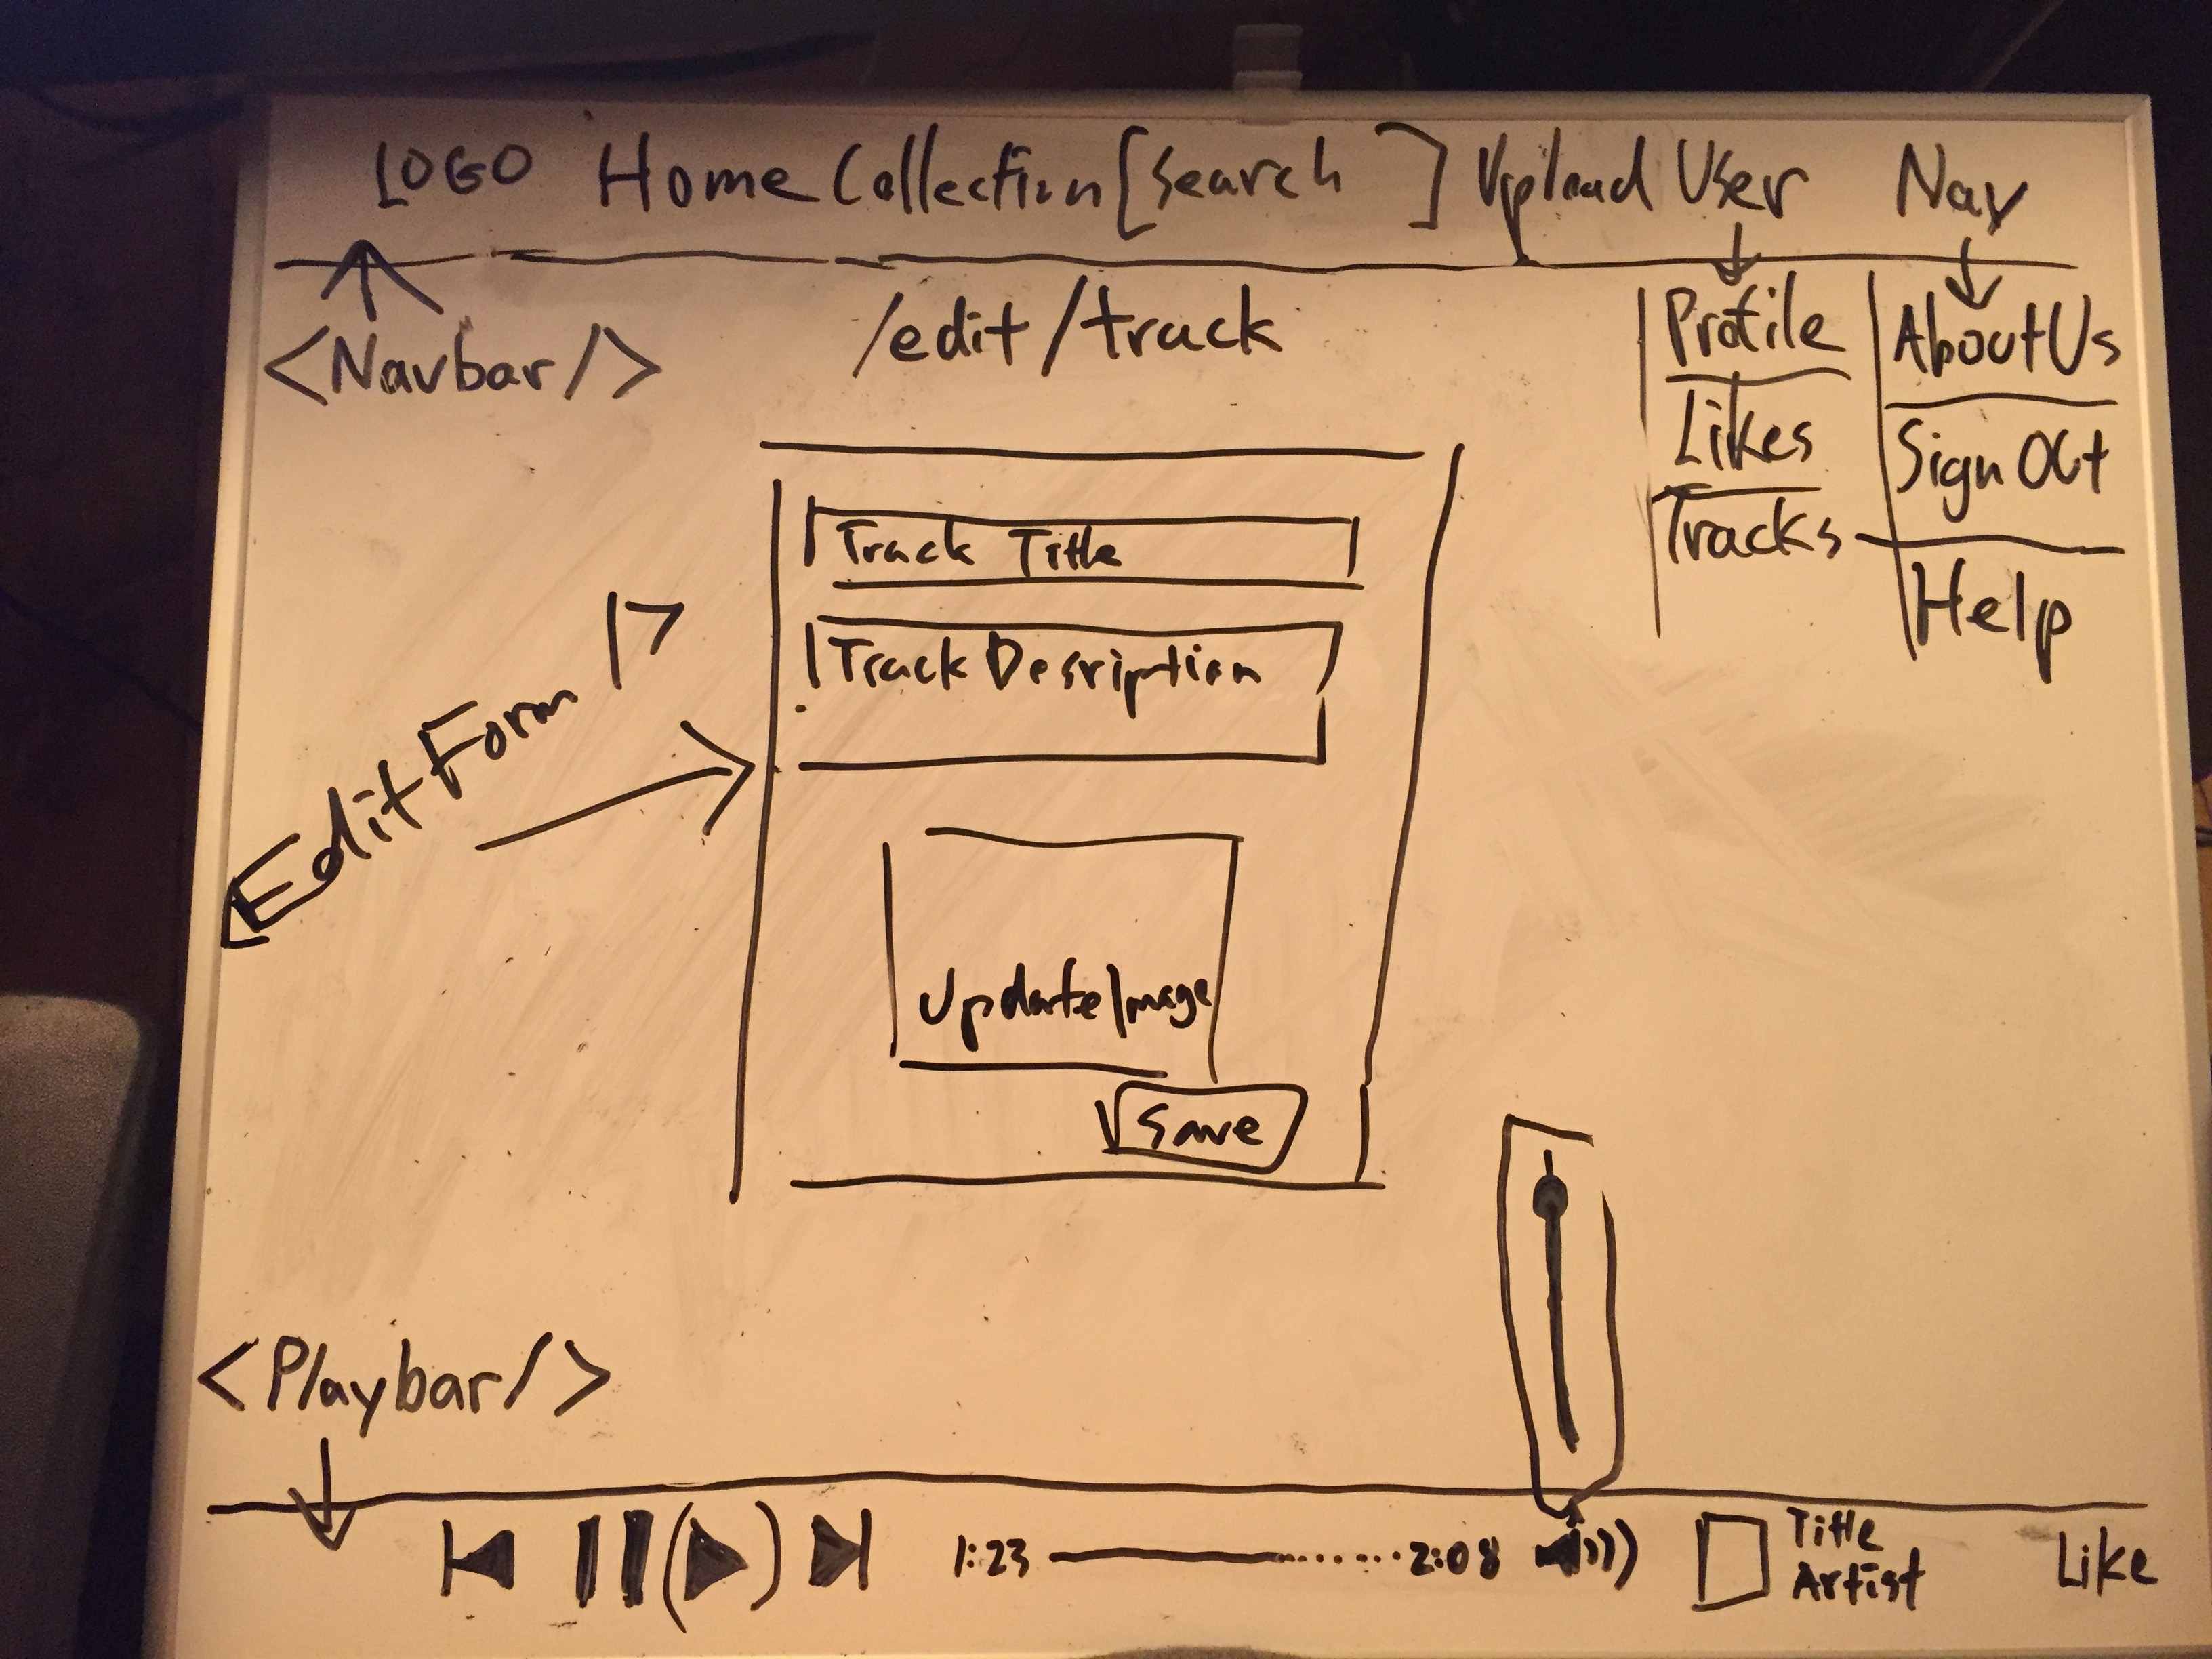 LOGO Home Collection [Search ] Upload User Nav
<Navbar/>
/edit/track
Profile
Likes
Tracks
About Us
Sign Out
Help
<EditForm />
Track Title
Track Desription
Update Image
Save
<Playbar/>
1:23
2:08
Title
Artist
Like